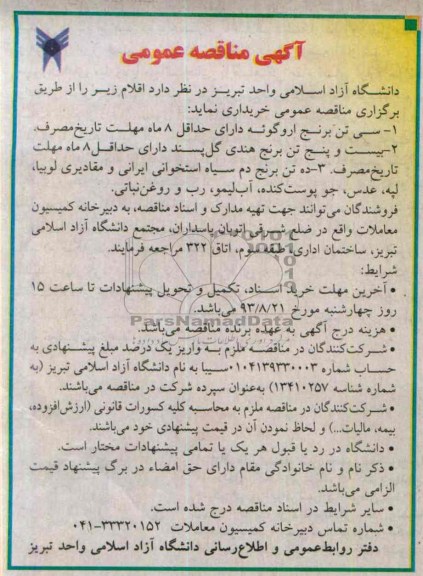 آگهی مناقصه عمومی
دانشگاه آزاد اسلامی واحد تبریز در نظر دارد اقلام زیر را از طریق
برگزاری مناقصه عمومی خریداری نماید:
۱- سی تن برنج اروگوئه دارای حداقل ۸ ماه مهلت تاریخ‌مصرف.
۲-بیست و پنج تن برنج هندی گل‌پسند دارای حداقل ۸ ماه مهلت
تاریخ‌مصرف. ۳-ده تن برنج دم سیاه استخوانی ایرانی و مقادیری لوبیا،
لپه، عدس، جو پوست‌کنده، آب‌لیمو، رب و روغن‌نباتی.
فروشندگان می‌توانند جهت تهیه مدارک و اسناد مناقصه، به دبیرخانه کمیسیون
معاملات واقع در ضلع شرقی اتوبان پاسداران، مجتمع دانشگاه آزاد اسلامی
تبریز، ساختمان اداری، طبقه سوم، اتاق ۳۲۲ مراجعه فرمایند.
شرایط:
• آخرین مهلت خرید اسناد، تکمیل و تحویل پیشنهادات تا ساعت ۱۵
روز چهارشنبه مورخ ۹۳/۸/۲۱ می‌باشد.
ParsNamadData
• هزینه درج آگهی به عهده برنده مناقصه می‌باشد.
• شرکت‌کنندگان در مناقصه ملزم به واریز یک درصد مبلغ پیشنهادی به
حساب شماره ۰۱۰۴۱۳۹۳۳۰۰۰۳سیبا به نام دانشگاه آزاد اسلامی تبریز (به
شماره شناسه ۱۳۴۱۰۲۵۷) به‌عنوان سپرده شرکت در مناقصه می‌باشند.
• شرکت‌کنندگان در مناقصه ملزم به محاسبه کلیه کسورات قانونی (ارزش‌افزوده،
بیمه، مالیات...) و لحاظ نمودن آن در قیمت پیشنهادی خود می‌باشند.
• دانشگاه در رد یا قبول هر یک یا تمامی پیشنهادات مختار است.
• ذکر نام و نام خانوادگی مقام دارای حق امضاء در برگ پیشنهاد قیمت
الزامی می‌باشد.
• سایر شرایط در اسناد مناقصه درج شده است.
• شماره تماس دبیرخانه کمیسیون معاملات ۳۳۳۲۰۱۵۲-۰۴۱
دفتر روابط‌عمومی و اطلاع‌رسانی دانشگاه آزاد اسلامی واحد تبریز